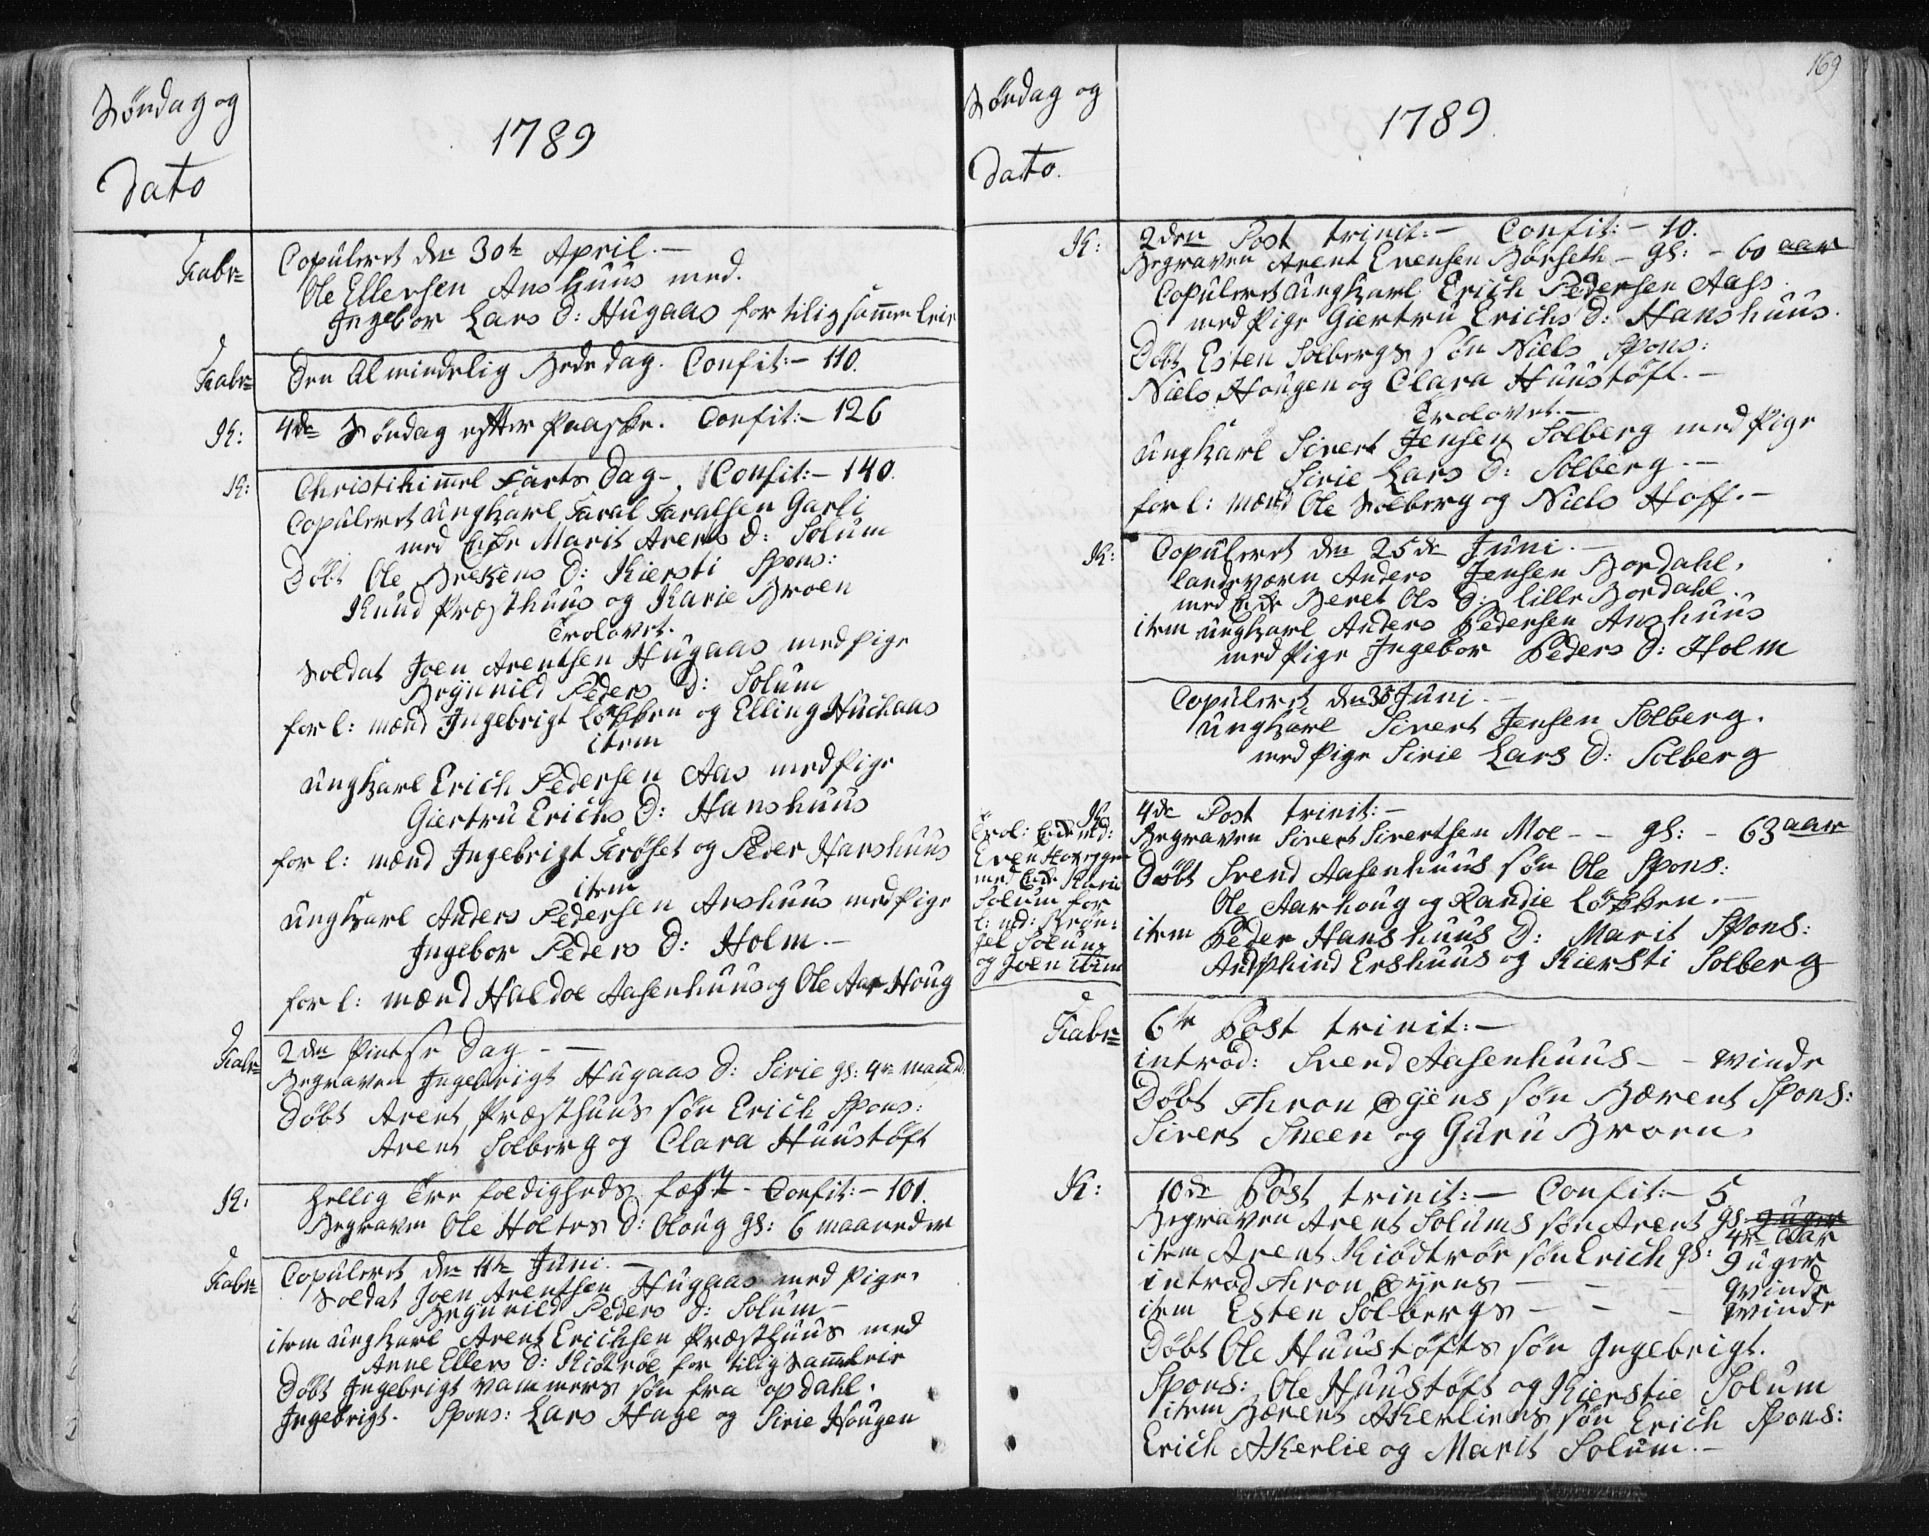 Søndag og
Dato
1789
Kabr=
Copuleret den 30te April.—
Ole Ellensen Anshuus med.
Ingebor Lars D: Hugaas for tilig sammenleie
Kabr=
Den Almindelig Bededag. Confit:— 110.
K:
4de Søndag efter Paaske. Confit:— 126
K:
Christi himmel Farts Dag—. Confit:— 140.
Copuleret ungkarl Taral Taralsen Garli
med Enke Marit Arens D: Solum
Døbt Ole Brekens D: Kiersti Spons:
Knud Præsthuus og Karie Broen
Trolovet.
Soldat Joen Arentsen Hugaas med Pige
Brynnild Peders D: Solum
for l: mænd Ingebrigt Løkken og Elling Huchaas
item
ungkarl Erich Pedersen Aas med Pige
Giertru Erichs D: Hanshuus
for l: mænd Ingebrigt Frøset og Peder Hanshuus
item
ungkarl Anders Pedersen Anshuus med Pige
Ingebor Peders D: Holm.—
for l: mænd Haldoe Aasenhuus og Ole AarHoug
Kabr=
2den Pintse Dag - —
Begraven Ingebrigt Hugaas D: Sirie gl: 4re maaned:
Døbt Arent Præsthuus søn Erich Spons:
Arent Solberg og Clara Huustøft
K:
Hellig Tre foldigheds fæst - Confit:— 101.
Begraven Ole Holtes D: Oloug gl: 6 maaneder
Kabr=
Copuleret den 11te Juni.—
Soldat Joen Arentsen Hugaas med Pige.
Brynnild Peders D: Solum—
item ungkarl Arent Erichsen Præsthuus med
Anne Ellers D: Kiøtrøe for tilig Sammleie
Døbt Ingebrigt Vammers søn fra opdahl.
Ingebrigt. Spons: Lars Hage og Sirie Hougen
169
Søndag og
Dato.
1789.
K:
2den Post trinit:— Confit:— 10.
Begraven Arent Evensen Børseth — gl: - 60 aar
Copuleret ungkarl Erich Pedersen Aass.
med Pige Giertru Erichs D: Hanshuus.
Døbt Esten Solbergs søn Niels Spons:
Niels Hougen og Clara Huustøft.—
Trolovet.—
ungkarl Sivert Jensen Solberg med Pige
Sirie Lars D: Solberg.—
for l: mænd Ole Solberg og Niels Hoff.—
K:
Copuleret den 25de Juni.—
landeværn Anders Jensen Bordahl,
med Enke Beret Ols D: lille Bordahl
item ungkarl Anders Pedersen Anshuus
med Pige Ingebor Peders D: Holm
Copuleret den 30 Juni.—
ungkarl Sivert Jensen Solberg.
med Pige Sirie Lars D: Solberg
K:
Trol: Enk md:
Even
med Enk: Karie
Solum for
l: md: Brøn=
gel Solum
og Joen item
4de Post trinit:—
Begraven Sivert Sivertsen Moe - - gl: - 63 aar
Døbt Svend Aasenhuus søn Ole Spons:
Ole Aarhoug og Randie Løkken.—
item Peder Hanshuus D: Marit Spons:
Andphind Ershuus og Kiersti Solberg
Kabr=
6te Post trinit:—
introd: Svend Aasenhuus - - Qvinde
Døbt Thron Øyens søn Bærent Spons:
Sivert Sneen og Guru Broen.
K:
10de Post trinit:— Confit:— 5
Begraven Arent Solums søn Arent gl: 9 uger
4re Aar
item Arent Kiødtrør søn Erich gl: 9 uger
introd Thron Øyens — - - Qvinde
item Esten Solbergs — - - Qvinde
Døbt Ole Huustøfts søn Ingebrigt.
Spons: Ole Huustøft og Kierstie Solum
item Bærent Akerliens søn Erich Spons:
Erich Akerlie og Marit Solum.—